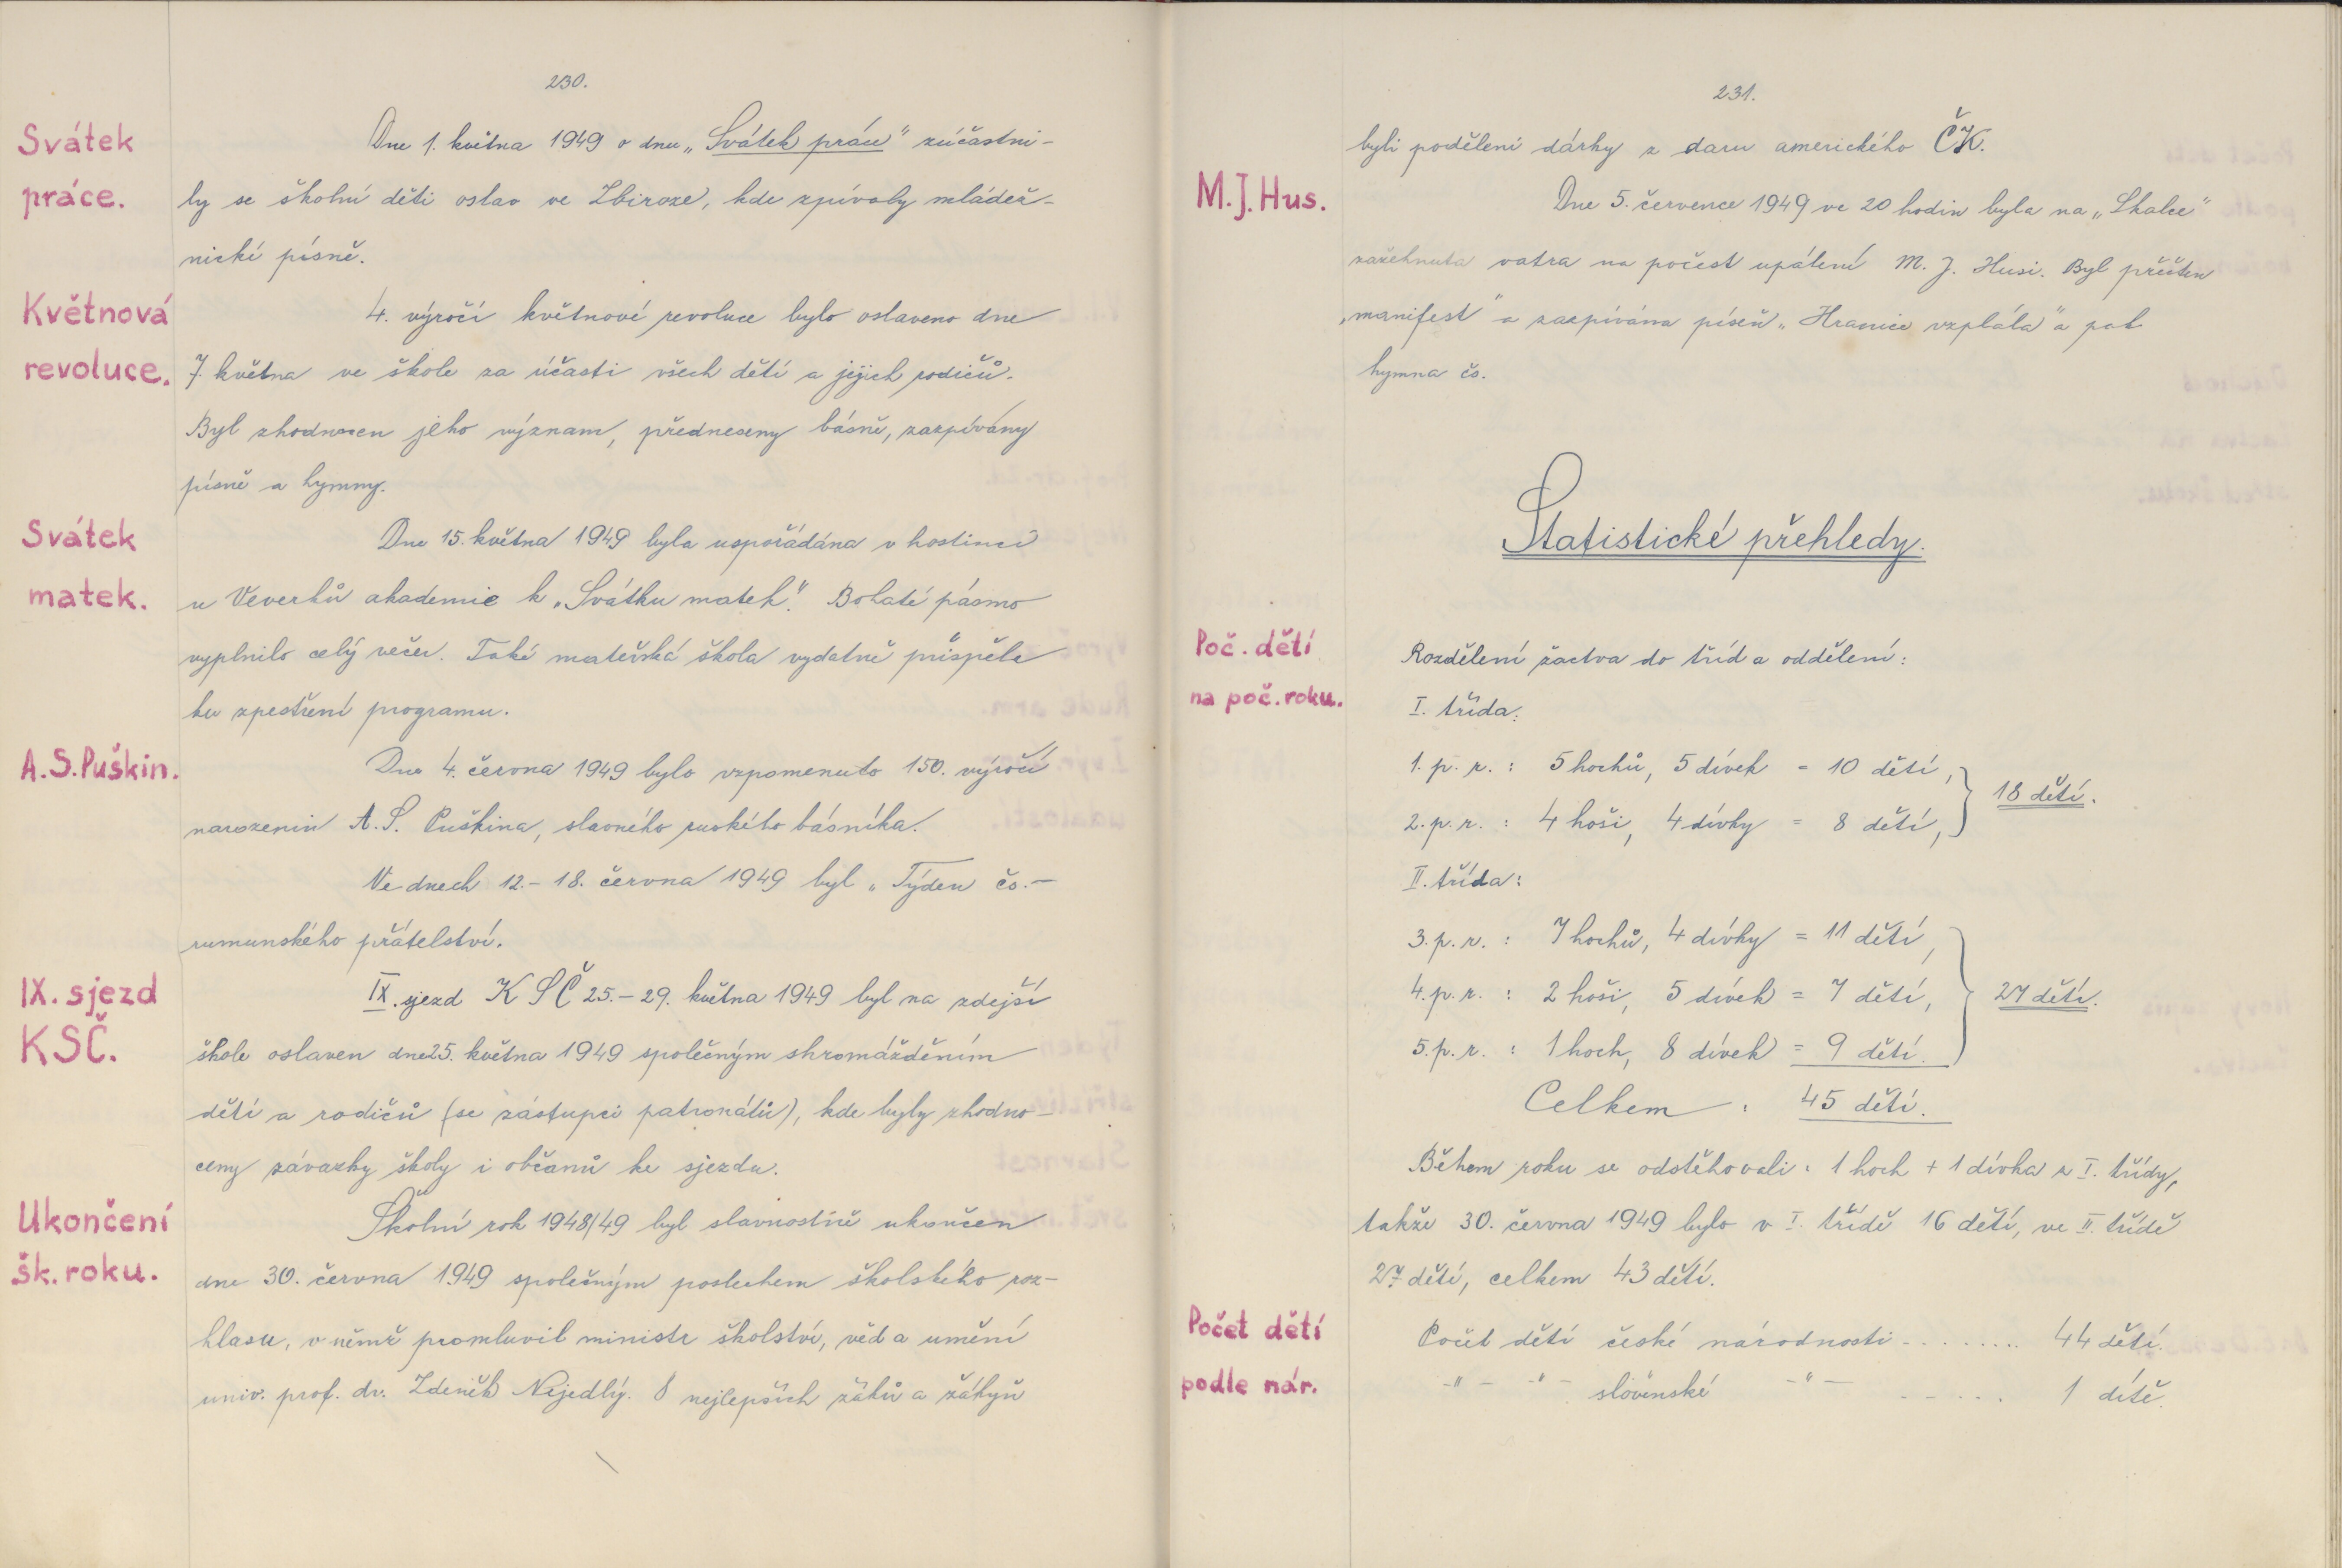 230.
Svátek
práce.
Dne 1. května 1949 o dnu „Svátek práce" zúčastni-
ly se školní děti oslav ve Zbiroze, kde zpívaly mládež-
nické písně.
Květnová
revoluce.
4. výročí květnové revoluce bylo oslaveno dne
7. května ve škole za účasti všech dětí a jejich rodičů.
Byl zhodnocen jeho význam, předneseny básně, zazpívány
písně a hymny.
Svátek
matek.
Dne 15. května 1949 byla uspořádána v hostinci
u Veverků akademie k „Svátku matek". Bohaté pásmo
vyplnilo celý večer. Také mateřská škola vydatně přispěla
ku zpestření programu.
A.S.Puškin.
Dne 4. června 1949 bylo vzpomenuto 150. výročí
narozenin A. S. Puškina, slavného ruského básníka.
Ve dnech 12.- 18. června 1949 byl „Týden čs.-
rumunského přátelství.
IX. sjezd
KSČ.
IX. sjezd KSČ 25.- 29. května 1949 byl na zdejší
škole oslaven dne 25. května 1949 společným shromážděním
dětí a rodičů (se zástupci patronátů), kde byly zhodno-
ceny závazky školy i občanů ke sjezdu.
Ukončení
šk. roku.
Školní rok 1948/49 byl slavnostně ukončen
dne 30. června 1949 společným poslechem školského roz-
hlasu, v němž promluvil ministr školství, věd a umění
univ. prof. dr. Zdeněk Nejedlý. 8 nejlepších žáků a žákyň
231.
byli poděleni dárky z daru amerického ČK.
M.J. Hus.
Dne 5. července 1949 ve 20 hodin byla na „Skalce"
zažehnuta vatra na počest upálení M. J. Husi. Byl přečten
„manifest" a zazpívána píseň „Hranice vzplála" a pak
hymna čs.
Statistické přehledy.
Poč. dětí
na poč. roku.
Rozdělení žactva do tříd a oddělení:
I. třída:
1. p. r. : 5 hochů, 5 dívek = 10 dětí,
2. p. r. : 4 hoši, 4 dívky = 8 dětí,
18 dětí.
II. třída:
3. p. r. : 7 hochů, 4 dívky = 11 dětí,
4. p. r. : 2 hoši, 5 dívek = 7 dětí,
5. p. r. : 1 hoch, 8 dívek = 9 dětí.
27 dětí.
Celkem : 45 dětí.
Během roku se odstěhovali: 1 hoch + 1 dívka z I. třídy,
takže 30. června 1949 bylo v I. třídě 16 dětí, ve II. třídě
27 dětí, celkem 43 dětí.
Počet dětí
podle nár.
Počet dětí české národnosti - . . . . . . . 44 dětí.
-"- -"- slovenské -"- - - . . . 1 dítě.